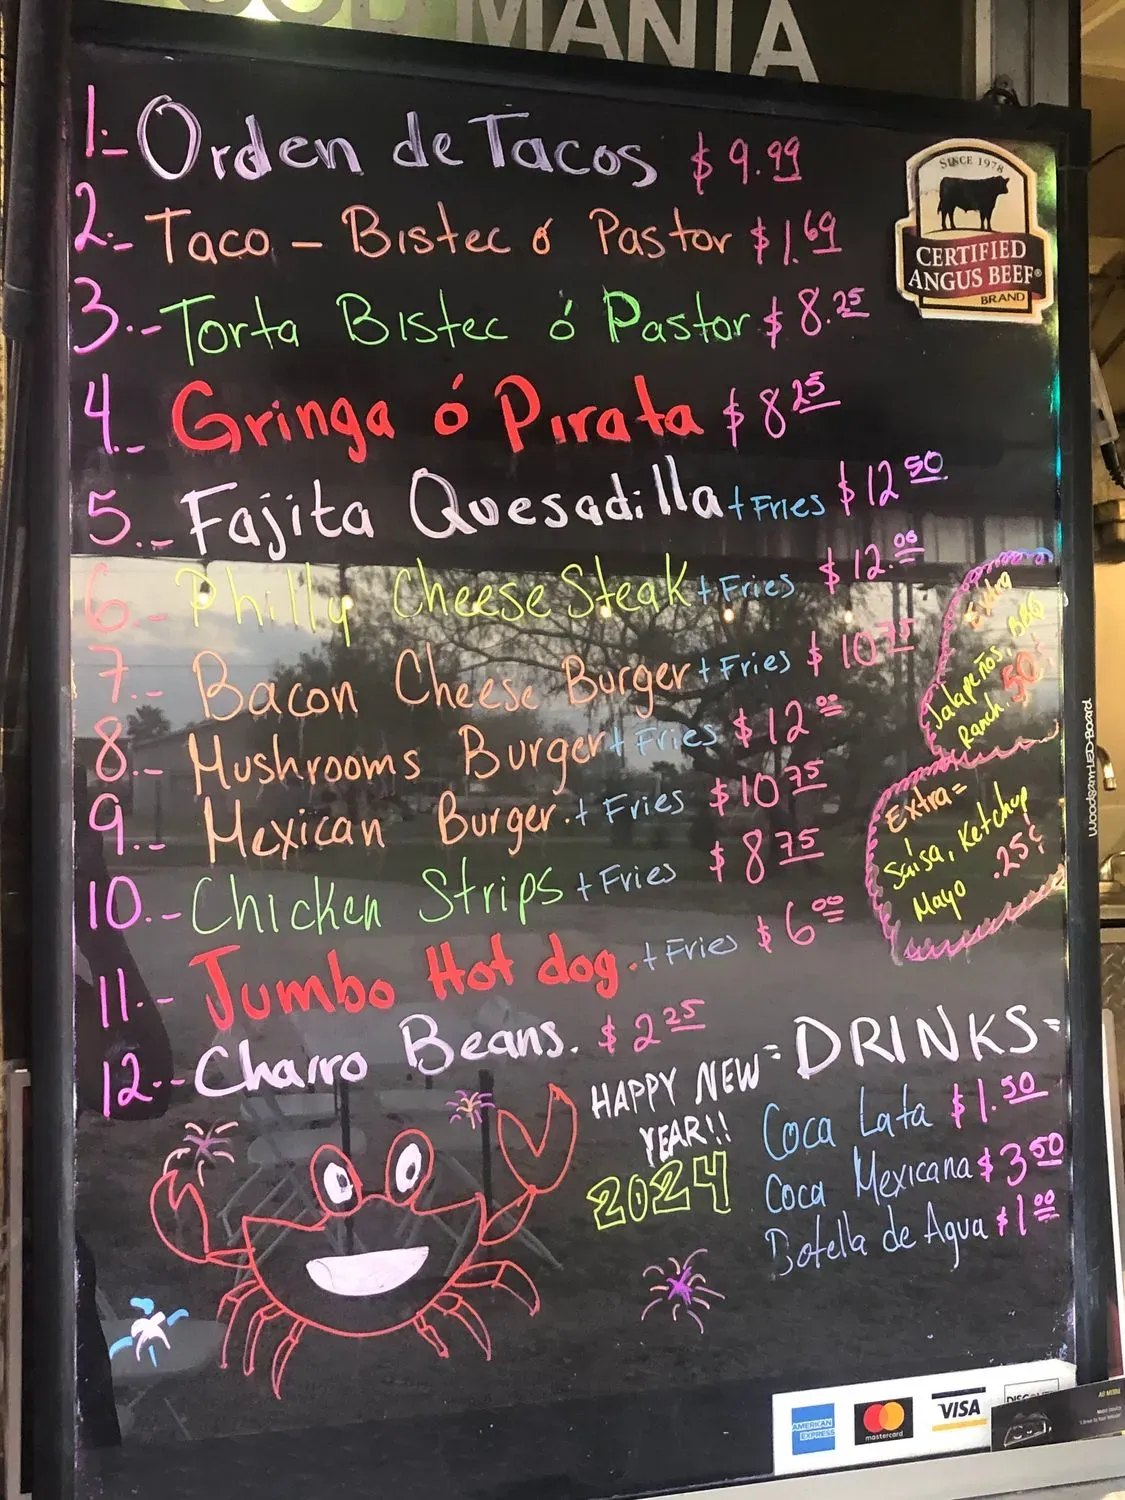 OOD MANIA
1.- Orden de Tacos $ 9.99
2.- Taco - Bistec ó Pastor $ 1.69
3.- Torta Bistec ó Pastor $ 8.25
4.- Gringa ó Pirata $ 8 25
5.- Fajita Quesadilla + Fries $ 12 50
6.- Philly Cheese Steak + Fries $ 12.00
7.- Bacon Cheese Burger + Fries $ 10 75
8.- Mushrooms Burger + Fries $ 12 00
9.- Mexican Burger. + Fries $ 10 75
10.- Chicken Strips + Fries $ 8 75
11.- Jumbo Hot dog. + Fries $ 6 00
12.- Charro Beans. $ 2 25
SINCE 1978
CERTIFIED
ANGUS BEEF®
BRAND
Extra
BBQ
Jalapeños,
Ranch .50¢
Extra=
Salsa, Ketchup
Mayo .25¢
Woodsam LED-Board
HAPPY NEW
YEAR!!
2024
=DRINKS=
Coca Lata $ 1.50
Coca Mexicana $ 3 50
Botella de Agua $ 1 00
AMERICAN
EXPRESS
mastercard
VISA